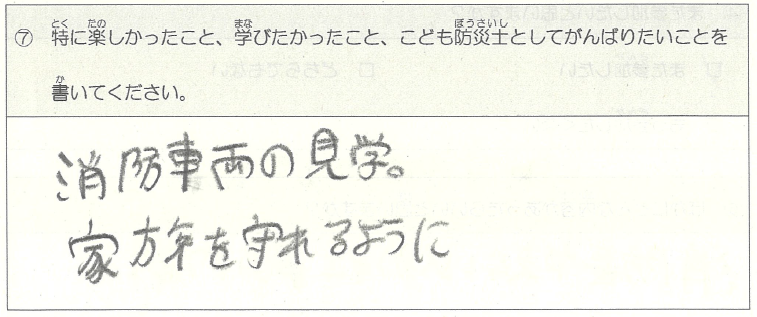 ⑦ 特に楽しかったこと、学びたかったこと、こども防災士としてがんばりたいことを
書いてください。
消防車両の見学。
家族を守れるように